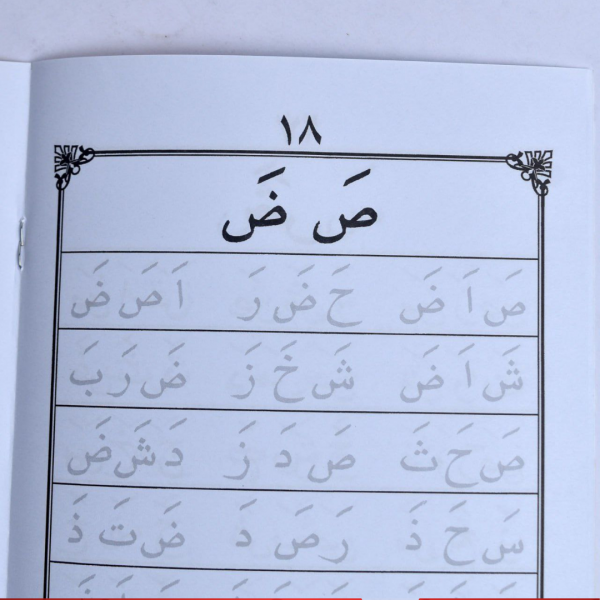 ١٨
صَ ضَ
صَ اَ ضَ حَ ضَ رَ اَ صَ ضَ
شَ اَ ضَ شَ خَ زَ ضَ رَ بَ
صَ حَ ثَ صَ دَ زَ دَ شَ ضَ
سَ حَ ذَ رَ صَ دَ ضَ تَ ذَ